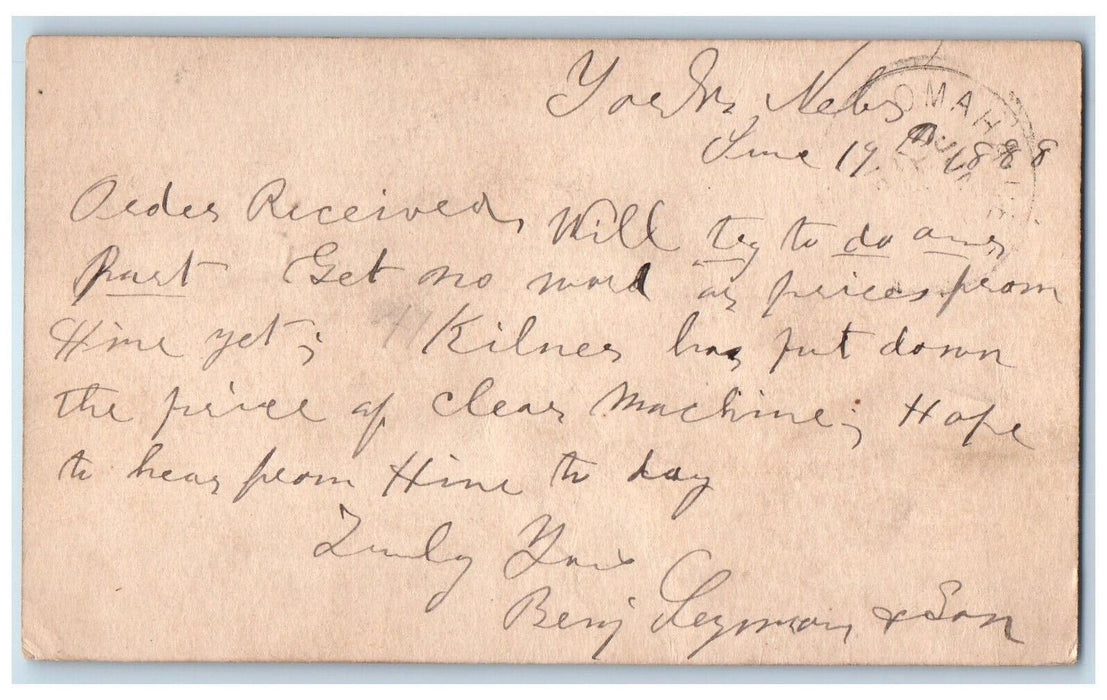 York, Nebr
OMAHA
June 19 1888
Order Received, Will try to do our
Part Get no word or prices from
Hine yet; Kilner has put down
the price of clear Machine; Hope
to hear from Hine to day
Truly Yours
Benj & Son